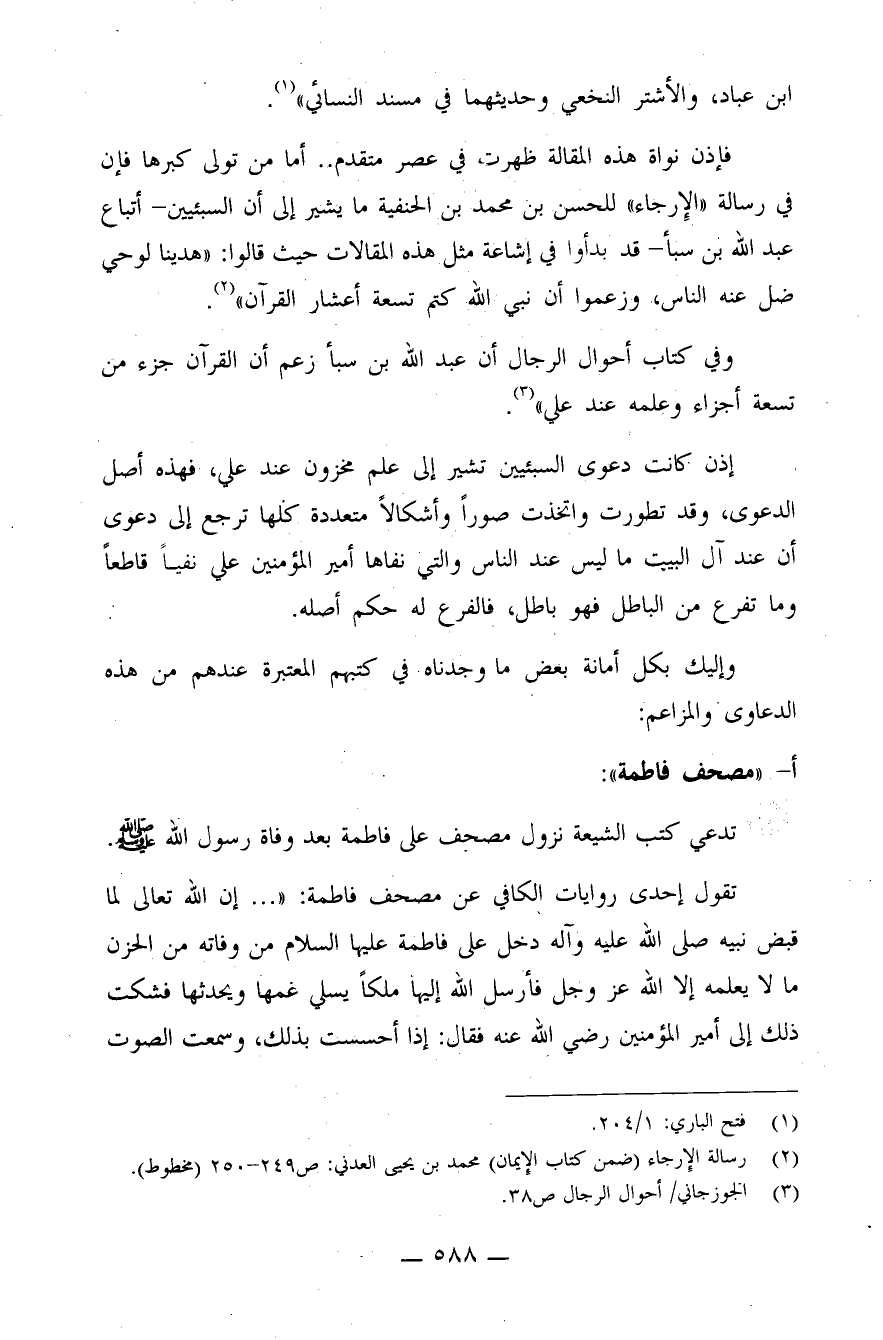 ابن عباد، والأشتر النخعي وحديثهما في مسند النسائي»(١).
فإذن نواة هذه المقالة ظهرت في عصر متقدم.. أما من تولى كبرها فإن
في رسالة «الإرجاء» للحسن بن محمد بن الحنفية ما يشير إلى أن السبئيين– أتباع
عبد الله بن سبأ– قد بدأوا في إشاعة مثل هذه المقالات حيث قالوا: «هدينا لوحي
ضل عنه الناس، وزعموا أن نبي الله كتم تسعة أعشار القرآن»(٢).
وفي كتاب أحوال الرجال أن عبد الله بن سبأ زعم أن القرآن جزء من
تسعة أجزاء وعلمه عند علي»(٣).
إذن كانت دعوى السبئيين تشير إلى علم مخزون عند علي، فهذه أصل
الدعوى، وقد تطورت واتخذت صوراً وأشكالاً متعددة كلها ترجع إلى دعوى
أن عند آل البيت ما ليس عند الناس والتي نفاها أمير المؤمنين علي نفياً قاطعاً
وما تفرع من الباطل فهو باطل، فالفرع له حكم أصله.
وإليك بكل أمانة بعض ما وجدناه في كتبهم المعتبرة عندهم من هذه
الدعاوى والمزاعم:
أ– «مصحف فاطمة»:
تدعي كتب الشيعة نزول مصحف على فاطمة بعد وفاة رسول الله ﷺ.
تقول إحدى روايات الكافي عن مصحف فاطمة: «... إن الله تعالى لما
قبض نبيه صلى الله عليه وآله دخل على فاطمة عليها السلام من وفاته من الحزن
ما لا يعلمه إلا الله عز وجل فأرسل الله إليها ملكاً يسلي غمها ويحدثها فشكت
ذلك إلى أمير المؤمنين رضي الله عنه فقال: إذا أحسست بذلك، وسمعت الصوت
(١) فتح الباري: ٢٠٤/١.
(٢) رسالة الإرجاء (ضمن كتاب الإيمان) محمد بن يحيى العدني: ص٢٤٩–٢٥٠ (مخطوط).
(٣) الجوزجاني/ أحوال الرجال ص٣٨.
— ٥٨٨ —